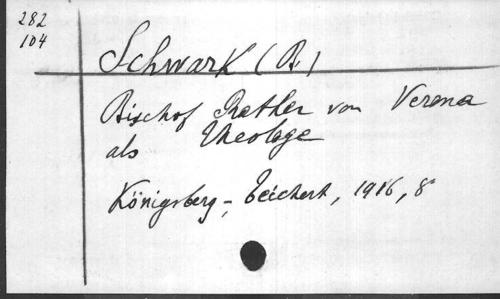 282
104
Schwark (B.)
Bischof Rather von Verona
als Theologe
Königsberg, Teichert, 1916, 8°